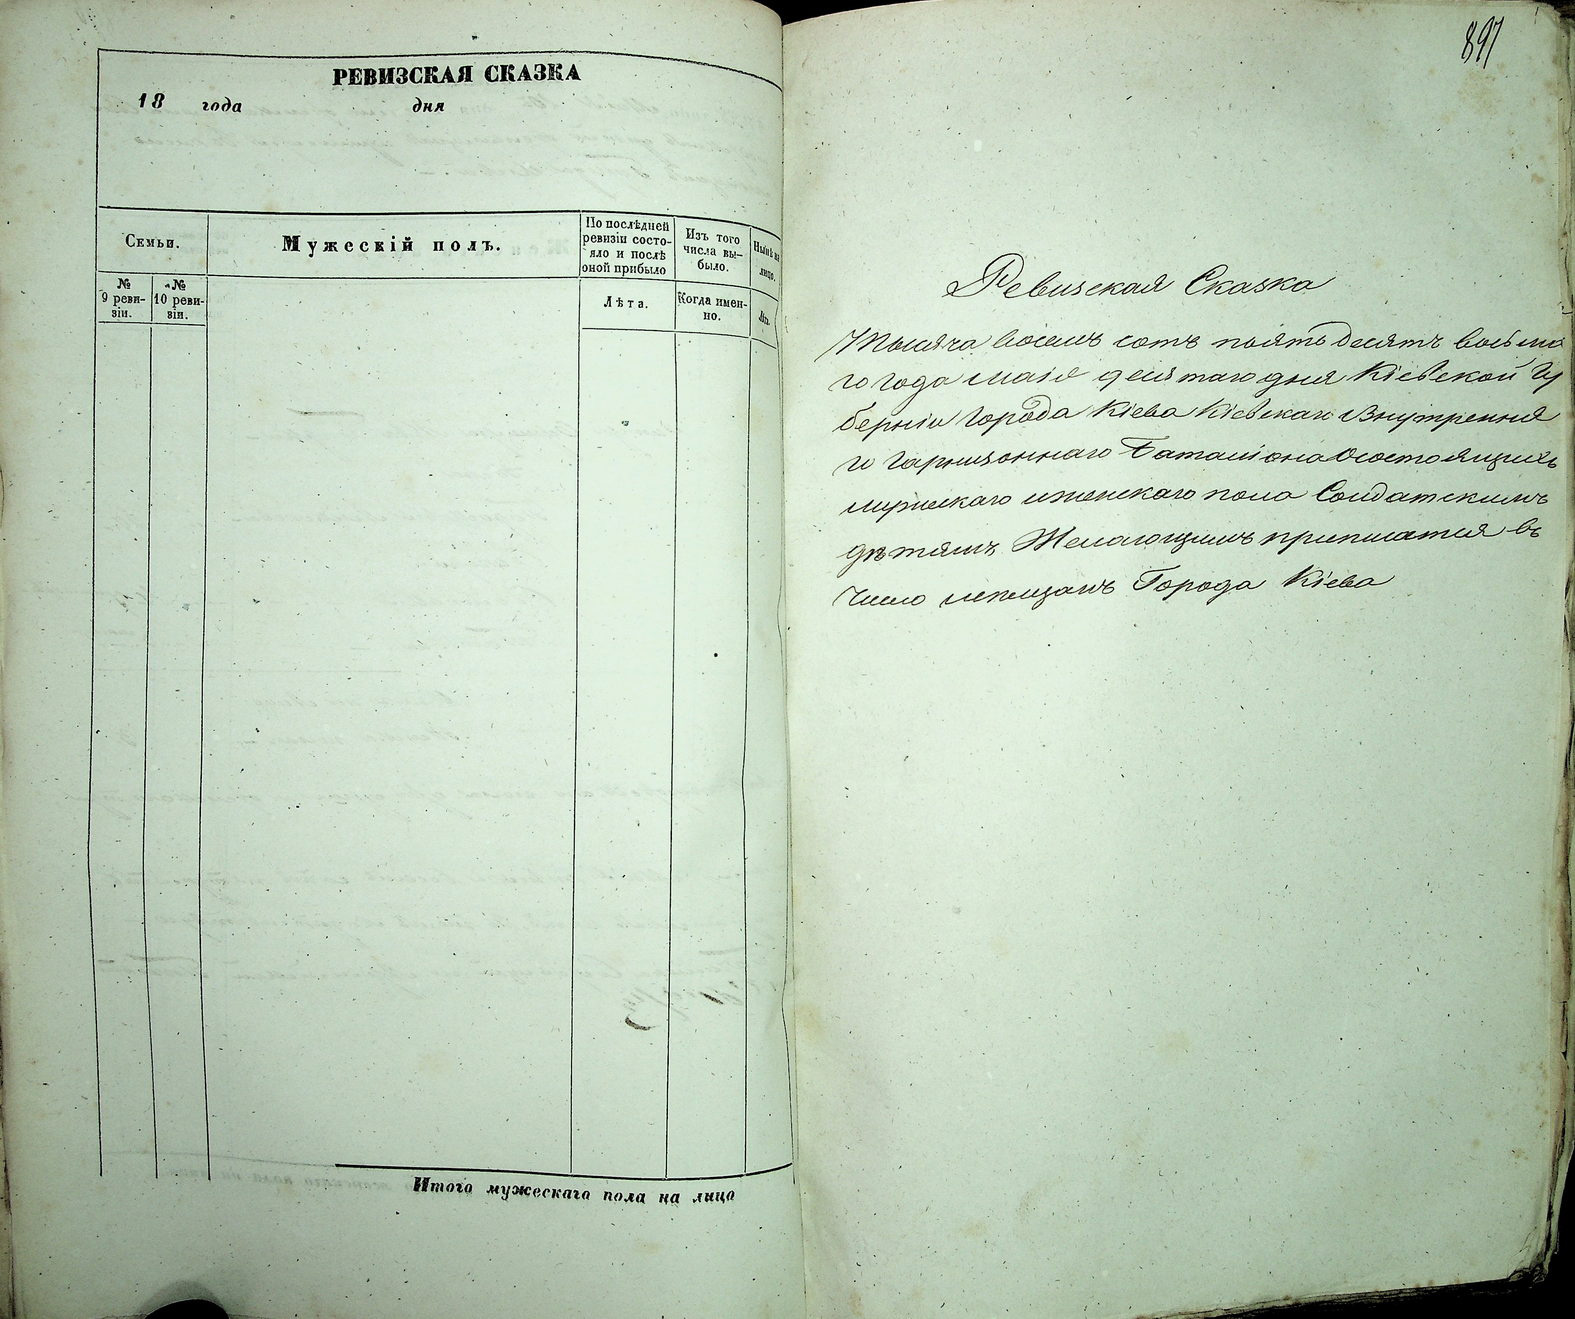 РЕВИЗСКАЯ СКАЗКА
18 года дня
Семьи.
Мужескій полъ.
По послѣдней ревизіи состояло и послѣ оной прибыло
Изъ того числа вы-было.
Нынѣ на лицо.
№ 9 реви-зіи.
№ 10 реви-зіи.
Лѣта.
Когда имен-но.
Лѣта.
Итого мужескаго пола на лицо
897
Ревизская Сказка
Тысяча восемь сотъ пять десятъ восьма
го года маія десятаго дня Кіевской Гу
берніи Города Кіева Кіевскаго Внутрення
го Гарнизоннаго Баталіона о состоящихъ
мужескаго и женскаго пола Солдатскимъ
дѣтямъ Желающимъ приписатся въ
число мещанъ Города Кіева